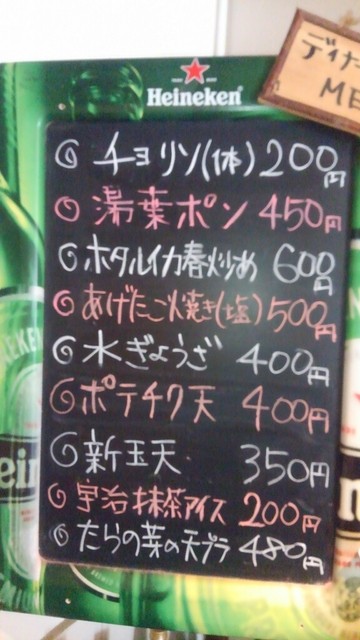 Heineken
ディナ
ME
◎ チョリソ(1本) 200円
◎ 湯葉ポン 450円
◎ ホタルイカ春炒め 600円
◎ あげたこ焼き(塩) 500円
◎ 水ぎょうざ 400円
◎ ポテチク天 400円
◎ 新玉天 350円
◎ 宇治抹茶アイス 200円
◎ たらの芽の天プラ 480円